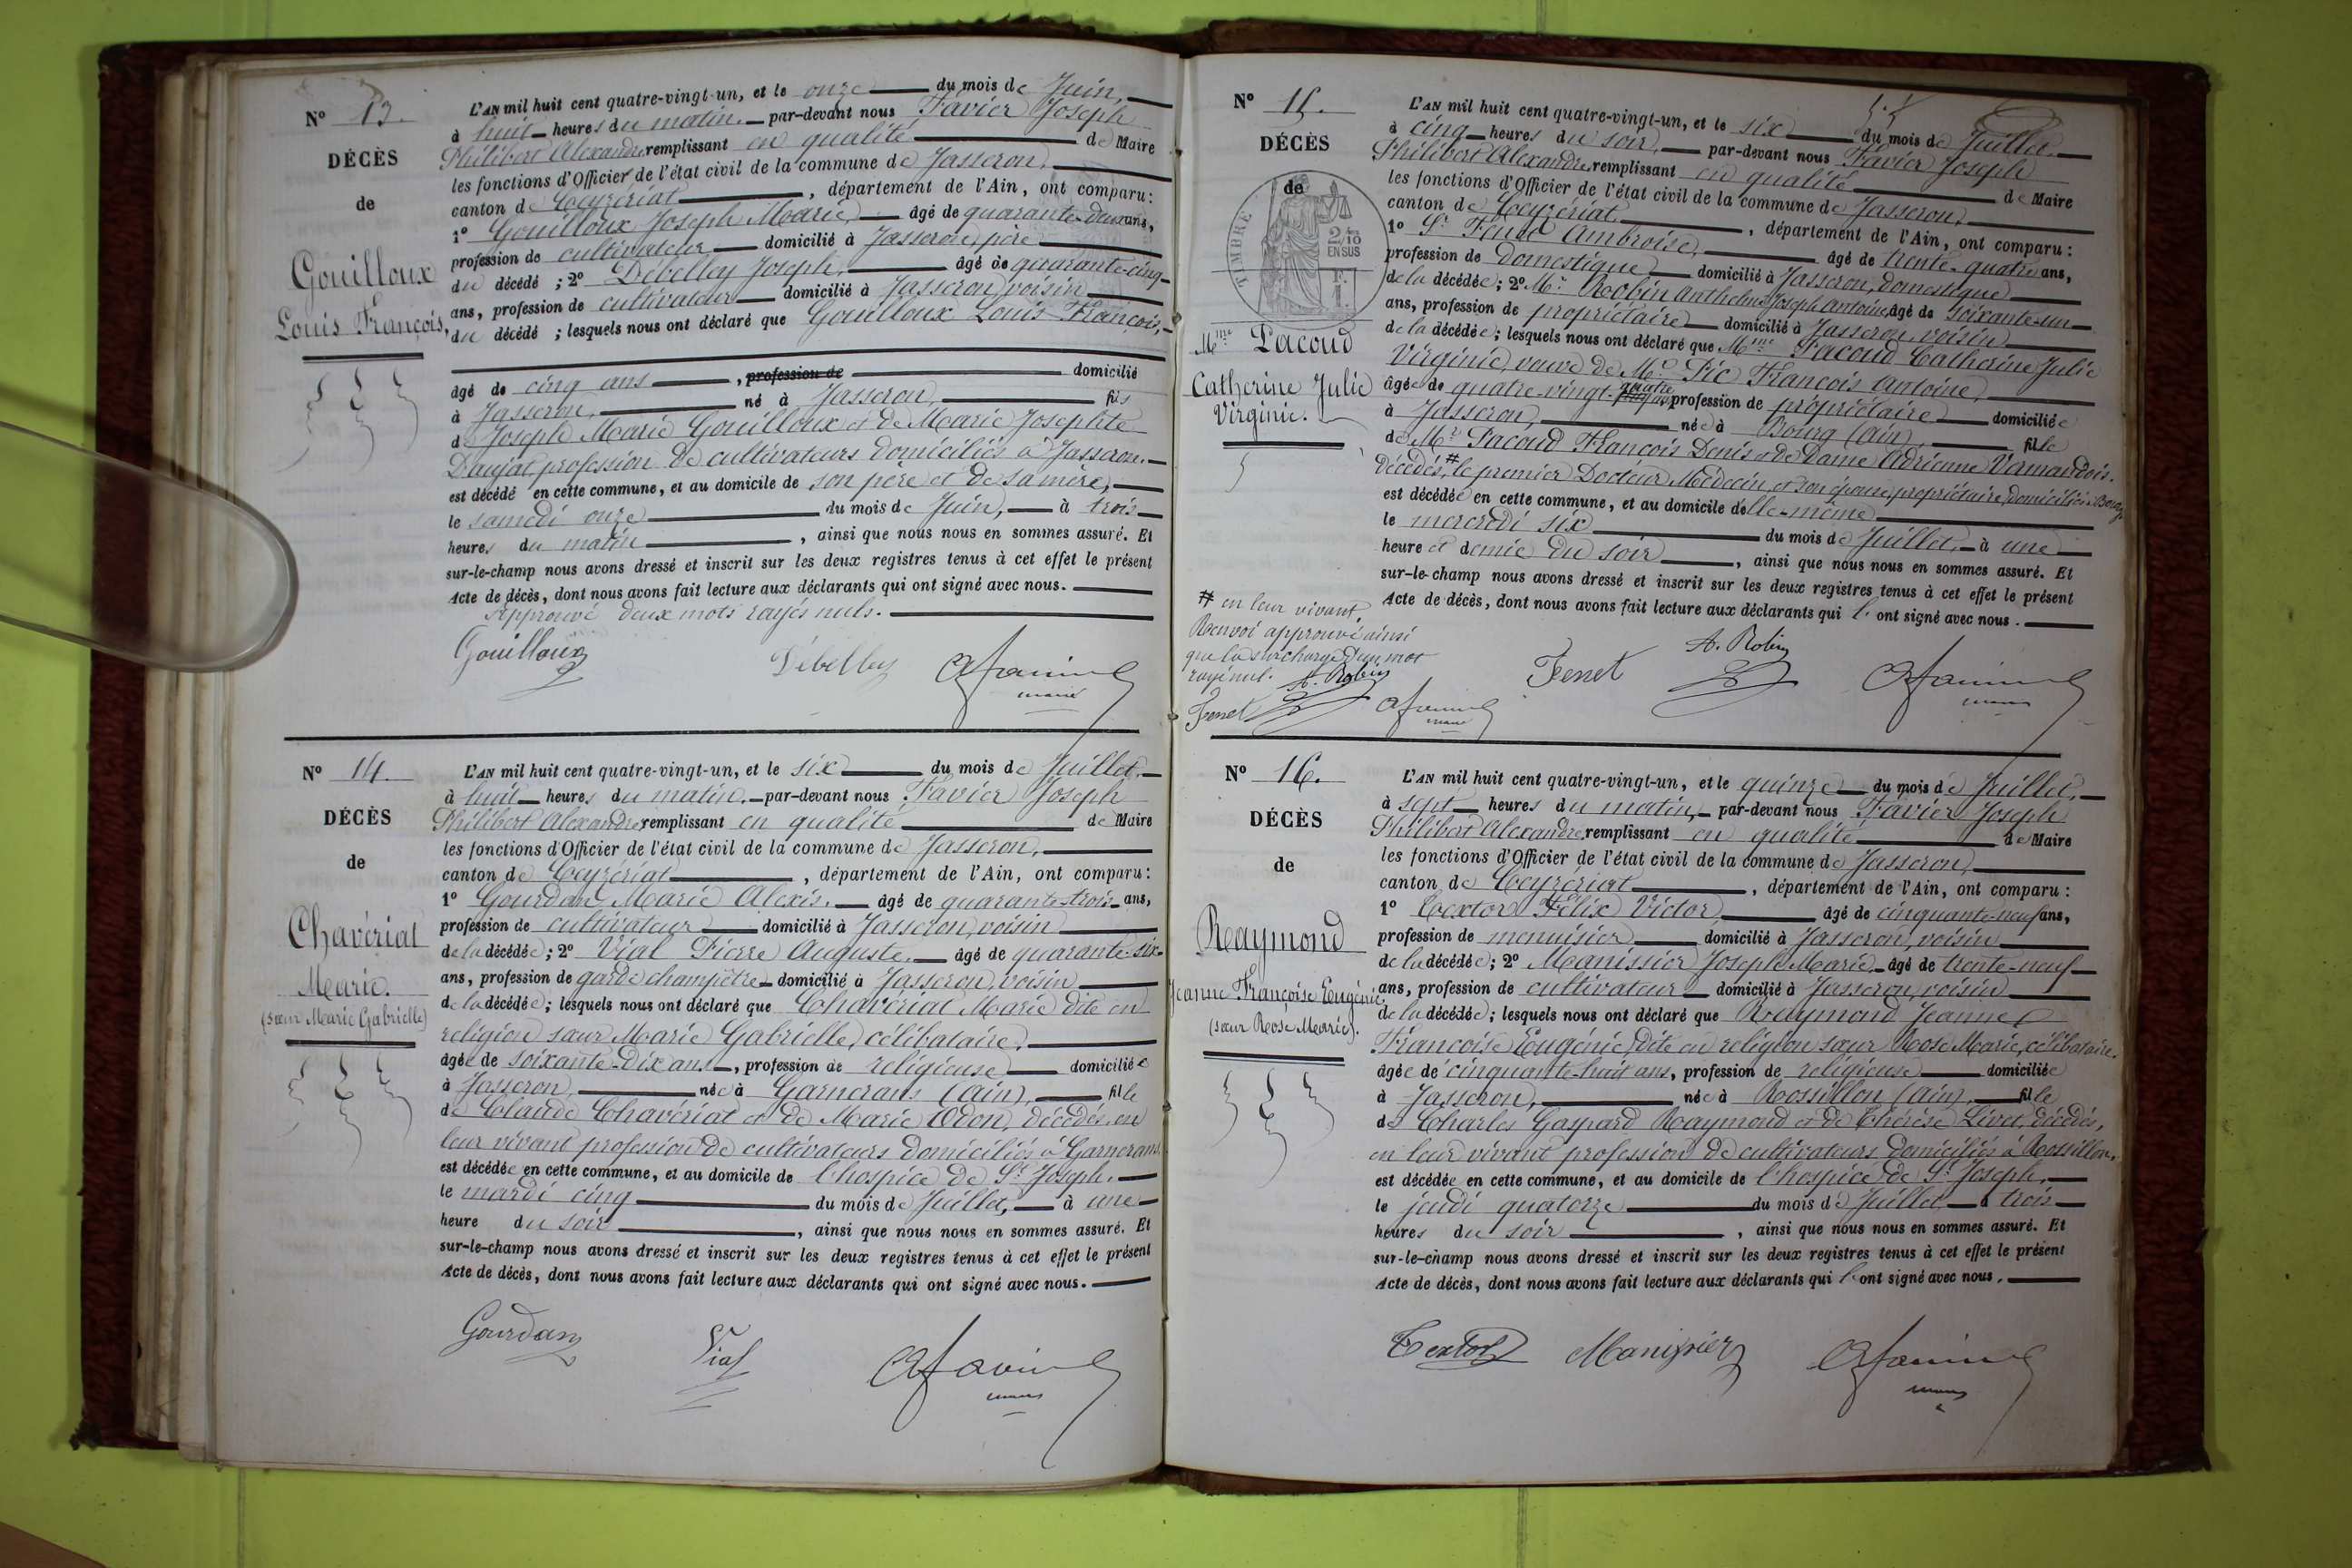 N° 13.
DÉCÈS
de
Gouilloux
Louis François,
L'AN mil huit cent quatre-vingt-un, et le onze du mois de Juin,
à huit heures du matin. par-devant nous Favier Joseph
Philibert Alexandre, remplissant en qualité de Maire
les fonctions d'Officier de l'état civil de la commune de Jasseron,
canton de Ceyzériat, département de l'Ain, ont comparu:
1° Gouilloux Joseph Marie, âgé de quarante-deux ans,
profession de cultivateur domicilié à Jasseron, père
du décédé ; 2° Débelley Joseph, âgé de quarante-cinq
ans, profession de cultivateur domicilié à Jasseron, voisin
du décédé ; lesquels nous ont déclaré que Gouilloux Louis François,
âgé de cinq ans, profession de domicilié
à Jasseron, né à Jasseron, fils
de Joseph Marie Gouilloux et de Marie Josephte
Daujat, profession de cultivateurs domiciliés à Jasseron.
est décédé en cette commune, et au domicile de son père et de sa mère,
le samedi onze du mois de Juin, à trois
heures du matin, ainsi que nous nous en sommes assuré. Et
sur-le-champ nous avons dressé et inscrit sur les deux registres tenus à cet effet le présent
Acte de décès, dont nous avons fait lecture aux déclarants qui ont signé avec nous.
Approuvé deux mots rayés nuls.
Gouilloux Débelley Afavier
maire
N° 14.
DÉCÈS
de
Chavériat
Marie.
(sœur Marie Gabrielle)
L'AN mil huit cent quatre-vingt-un, et le six du mois de Juillet,
à huit heures du matin. par-devant nous Favier Joseph
Philibert Alexandre, remplissant en qualité de Maire
les fonctions d'Officier de l'état civil de la commune de Jasseron,
canton de Ceyzériat, département de l'Ain, ont comparu:
1° Gourdan Marie Alexis, âgé de quarante-trois ans,
profession de cultivateur domicilié à Jasseron, voisin
de la décédée; 2° Vial Pierre Auguste, âgé de quarante-six
ans, profession de garde champêtre domicilié à Jasseron, voisin
de la décédée; lesquels nous ont déclaré que Chavériat Marie dite en
religion sœur Marie Gabrielle, célibataire,
âgée de soixante-dix ans, profession de religieuse domiciliée
à Jasseron, née à Garnerans (Ain), fille
de Claude Chavériat et de Marie Odon, décédés, en
leur vivant profession de cultivateurs domiciliés à Garnerans,
est décédée en cette commune, et au domicile de l'hospice de St Joseph.
le mardi cinq du mois de Juillet, à une
heure du soir, ainsi que nous nous en sommes assuré. Et
sur-le-champ nous avons dressé et inscrit sur les deux registres tenus à cet effet le présent
Acte de décès, dont nous avons fait lecture aux déclarants qui ont signé avec nous.
Gourdan Vial Afavier
maire
N° 15.
DÉCÈS
de
TIMBRE
2/10
EN SUS
Mme Pacoud
Catherine Julie
Virginie.
L'AN mil huit cent quatre-vingt-un, et le six du mois de Juillet,
à cinq heures du soir, par-devant nous Favier Joseph
Philibert Alexandre, remplissant en qualité de Maire
les fonctions d'Officier de l'état civil de la commune de Jasseron,
canton de Ceyzériat, département de l'Ain, ont comparu:
1° Sr Fenet Ambroise, âgé de trente-quatre ans,
profession de domestique, domicilié à Jasseron, domestique
de la décédée; 2° Mr Robin Anthelme Joseph Antoine, âgé de soixante-un
ans, profession de propriétaire domicilié à Jasseron, voisin
de la décédée; lesquels nous ont déclaré que Mme Pacoud Catherine Julie
Virginie, veuve de Mr Pic François Antoine,
âgée de quatre-vingt-quatre ans, profession de propriétaire domiciliée
à Jasseron, née à Bourg (Ain), fille
de Mr Pacoud François Denis et de Dame Adrienne Vermandois,
décédés, # le premier Docteur Médecin, et son épouse, propriétaire, domiciliés à Bourg
est décédée en cette commune, et au domicile d'elle-même
le mercredi six du mois de Juillet, à une
heure et demie du soir, ainsi que nous nous en sommes assuré. Et
sur-le-champ nous avons dressé et inscrit sur les deux registres tenus à cet effet le présent
Acte de décès, dont nous avons fait lecture aux déclarants qui l'ont signé avec nous.
# en leur vivant,
Renvoi approuvé ainsi
que la surcharge d'un mot
rayé nul. A. Robin
Fenet Afavier
maire
Fenet A. Robin Afavier
maire
N° 16.
DÉCÈS
de
Raymond
Jeanne Françoise Eugénie,
(sœur Rose Marie).
L'AN mil huit cent quatre-vingt-un, et le quinze du mois de Juillet,
à sept heures du matin, par-devant nous Favier Joseph
Philibert Alexandre, remplissant en qualité de Maire
les fonctions d'Officier de l'état civil de la commune de Jasseron,
canton de Ceyzériat, département de l'Ain, ont comparu:
1° Textor Félix Victor, âgé de cinquante-neuf ans,
profession de menuisier domicilié à Jasseron, voisin
de la décédée; 2° Manissier Joseph Marie, âgé de trente-neuf
ans, profession de cultivateur domicilié à Jasseron, voisin
de la décédée; lesquels nous ont déclaré que Raymond Jeanne
Françoise Eugénie, dite en religion sœur Rose Marie, célibataire,
âgée de cinquante-huit ans, profession de religieuse domiciliée
à Jasseron, née à Rossillon (Ain), fille
de Charles Gaspard Raymond et de Thérèse Livet, décédés,
en leur vivant profession de cultivateurs domiciliés à Rossillon,
est décédée en cette commune, et au domicile de l'hospice de St Joseph,
le jeudi quatorze du mois de Juillet, à trois
heures du soir, ainsi que nous nous en sommes assuré. Et
sur-le-champ nous avons dressé et inscrit sur les deux registres tenus à cet effet le présent
Acte de décès, dont nous avons fait lecture aux déclarants qui l'ont signé avec nous.
Textor Manissier Afavier
maire